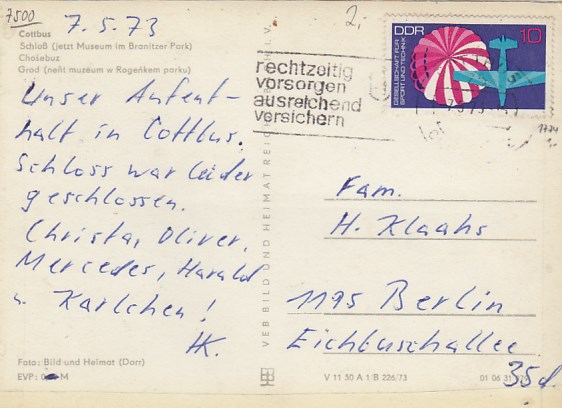 7500
Cottbus
7.5.73
Schloß (jetzt Museum im Branitzer Park)
Chośebuz
Grod (neńt muzeum w Rogeńkem parku)
Unser Aufent-
halt in Cottbus.
Schloss war leider
geschlossen.
Christa, Oliver,
Mercedes, Harald
u. Karlchen!
HK.
Foto: Bild und Heimat (Dorr)
EVP: M
VEB BILD UND HEIMAT REICH
2,-
rechtzeitig
vorsorgen
ausreichend
versichern
DDR
10
GESELLSCHAFT FÜR
SPORT UND TECHNIK
Fam.
H. Klaahs
1195 Berlin
Eichbuschallee
35d.
V 11 50 A 1/B 226/73
01 06 31